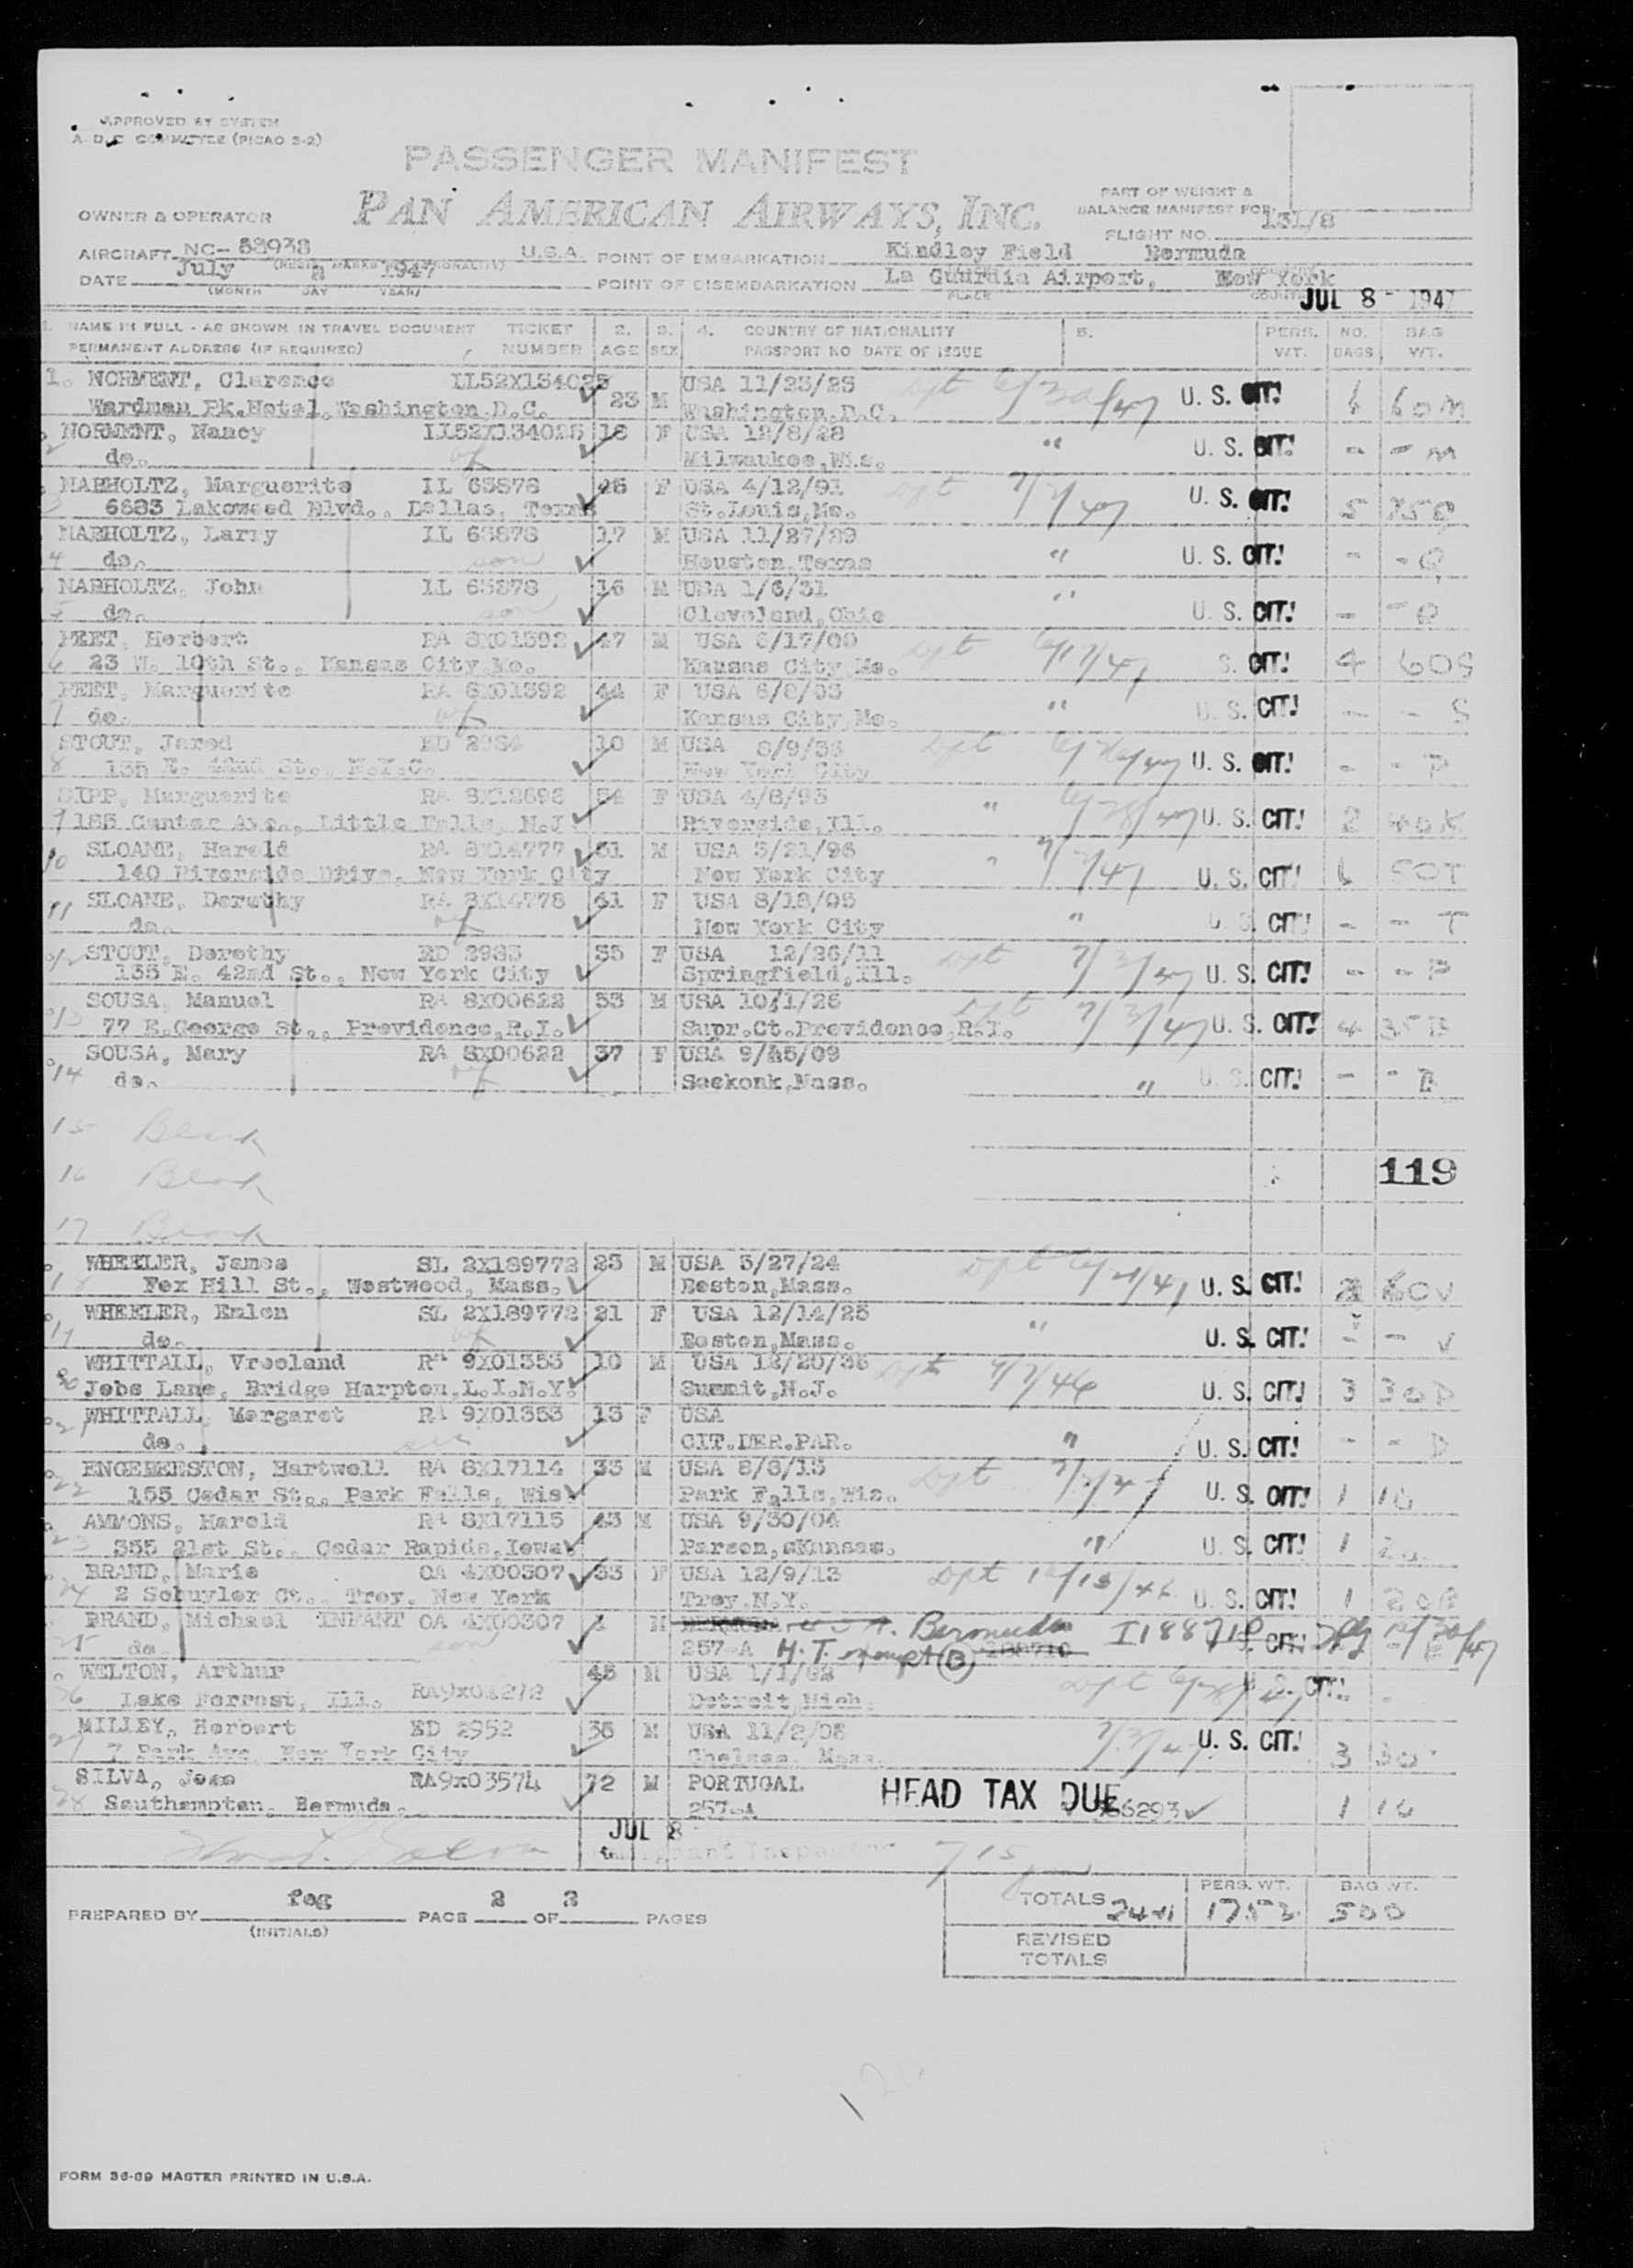 APPROVED BY SYSTEM
A. D. C COMMITTEE (PICAO 2-2)
PASSENGER MANIFEST
PAN AMERICAN AIRWAYS, INC.
PART OF WEIGHT &
BALANCE MANIFEST FOR
FLIGHT NO. 131/8
OWNER & OPERATOR
AIRCRAFT NC- 88938 U.S.A. POINT OF EMBARKATION Kindley Field Bermuda
DATE July 1947 POINT OF DISEMBARKATION La Guardia Airport, New York
(MONTH DAY YEAR) PLACE
JUL 8 - 1947
1. NAME IN FULL - AS SHOWN IN TRAVEL DOCUMENT TICKET 2. 3. 4. COUNTRY OF NATIONALITY 5. PERS. NO. BAG
PERMANENT ADDRESS (IF REQUIRED) NUMBER AGE SEX PASSPORT NO DATE OF ISSUE WT. BAGS WT.
1. NORMENT, Clarence IL52X134025 23 M USA 11/23/23 Dpt 6/30/47 U. S. CIT! 60M
Wardman Pk.Hotel,Washington,D.C. Washington,D.C.
2 NORMENT, Nancy IL52X134025 18 F USA 12/8/28 " U. S. CIT! - - M
do. wf Milwaukee,Wis.
MARHOLTZ, Marguerite IL 63878 F USA 4/12/91 Dpt U. S. CIT! 5
6683 Lakewood Blvd., Dallas, Texas St.Louis,Mo.
MARHOLTZ, Larry IL 63878 17 M USA 11/27/29 " U. S. CIT!
4 do. son Houston,Texas
MARHOLTZ, John IL 63878 16 M USA 1/6/31 " U. S. CIT!
5 do. son Cleveland,Ohio
PEET, Herbert RA 8X01392 47 M USA 6/17/00 Dpt S. CIT! 4 60S
6 23 W. 10th St., Kansas City,Mo. Kansas City,Mo.
PEET, Marguerite RA 8X01392 44 F USA 6/8/03 " U. S. CIT! - - S
7 do. wf Kansas City,Mo.
STOUT, Jared ED 2984 10 M USA Dpt U. S. CIT! - - P
8 135 E. 42nd St., N.Y.C. New York City
SIPP, Marguerite RA 8X12698 54 F USA 4/8/93 " 6/28/47 U. S. CIT! 2 40K
185 Center Ave., Little Falls, N.J. Riverside,Ill.
10 SLOANE, Harold RA 8X14777 51 M USA 3/21/96 " U. S. CIT! 50T
140 Riverside Drive, New York City New York City
11 SLOANE, Dorothy RA 8X14778 41 F USA 8/18/05 " U S. CIT! - - T
do. wf New York City
STOUT, Dorothy ED 2983 35 F USA 12/26/11 Dpt 7/3/47 U. S. CIT! - - P
135 E. 42nd St., New York City Springfield,Ill.
SOUSA, Manuel RA 8X00622 53 M USA 10/1/26 Dpt 7/3/47 U. S. CIT! 4 35B
13 77 E.George St., Providence,R.I. Supr.Ct.Providence,R.I.
SOUSA, Mary RA 8X00622 37 F USA 9/15/09 U. S. CIT! - - B
14 do. wf Seekonk,Mass. "
15 Blank
16 Blank
119
17 Blank
WHEELER, James SL 2X189772 23 M USA 3/27/24 Dpt U. S. CIT! 2 60V
Fox Hill St., Westwood, Mass. Boston,Mass.
WHEELER, Emlen SL 2X189772 21 F USA 12/14/25 " U. S. CIT! - - V
19 do. wf Boston,Mass.
WHITTALL, Vreeland RA 9X01353 10 M USA 12/20/36 Dpt U. S. CIT! 3 30D
20 Jobs Lane, Bridge Harpton,L.I.N.Y. Summit,N.J.
WHITTALL, Margaret RA 9X01353 13 F USA " U. S. CIT! - - D
21 do. sis CIT.DER.PAR.
ENGEBERSTON, Hartwell RA 8X17114 33 M USA 8/6/13 Dpt U. S. CIT! 1 10
22 155 Cedar St., Park Falls, Wis. Park Falls,Wis.
AMMONS, Harold RA 8X17115 43 M USA 9/30/04 " U. S. CIT! 1 20
23 355 21st St., Cedar Rapids,Iowa.
BRAND, Marie OA 4X00307 33 F USA 12/9/13 Dpt 12/13/46 U. S. CIT! 1
24 2 Schuyler Ct., Troy, New York Troy,N.Y.
BRAND, Michael INFANT OA 4X00307 M Bermuda I188710 CIT!
25 do son 257-A H.T. exempt (B)
WELTON, Arthur 45 M USA 1/1/02 Dpt S. CIT!
26 Lake Forrest, Ill. RA9X02272 Detroit,Mich.
MILLEY, Herbert ED 2952 M USA U. S. CIT! 3 30
27 7 Park Ave, New York City Chelsea, Mass.
SILVA, Joan RA9X03574 72 M PORTUGAL HEAD TAX DUE
28 Southampton, Bermuda. 257-A 1 10
JUL 8
Immigrant Inspector
PREPARED BY fog PAGE 2 OF 3 PAGES
(INITIALS)
PERS. WT. BAG WT.
TOTALS 1753 500
REVISED
TOTALS
FORM 36-69 MASTER PRINTED IN U.S.A.